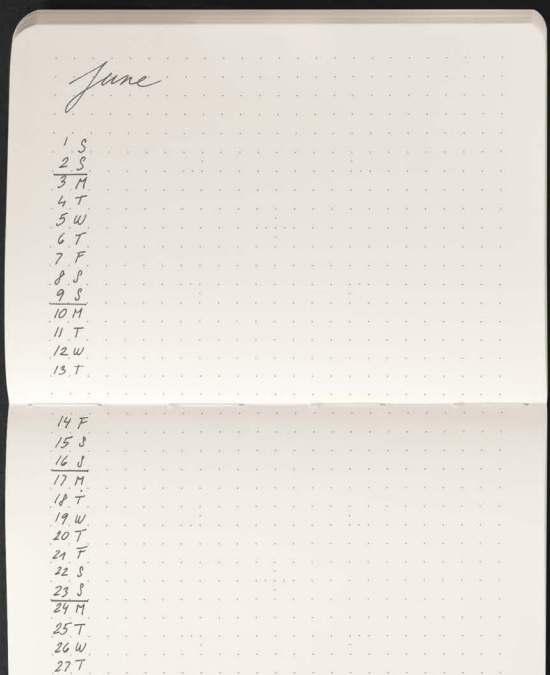 June
1 S
2 S
3 M
4 T
5 W
6 T
7 F
8 S
9 S
10 M
11 T
12 W
13 T
14 F
15 S
16 S
17 M
18 T
19 W
20 T
21 F
22 S
23 S
24 M
25 T
26 W
27 T